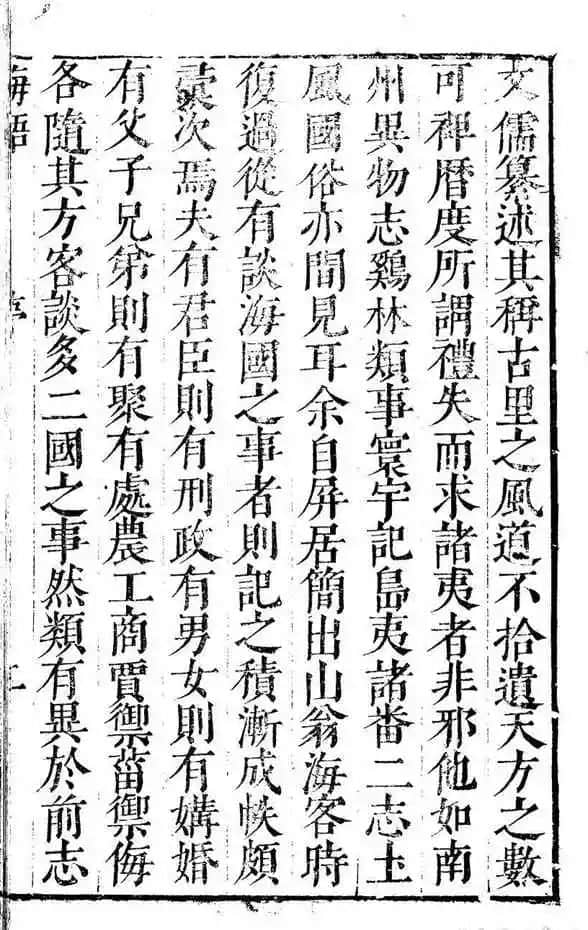 文儒纂述其稱古里之風道不拾遺天方之數
可裨曆度所謂禮失而求諸夷者非邪他如南
州異物志鷄林類事寰宇記島夷諸畨二志土
風國俗亦間見耳余自屏居簡出山翁海客時
復過從有談海國之事者則記之積漸成帙頗
彚次焉夫有君臣則有刑政有男女則有媾婚
有父子兄弟則有聚有處農工商賈禦菑禦侮
各隨其方客談多二國之事然類有異於前志
海語 序 二